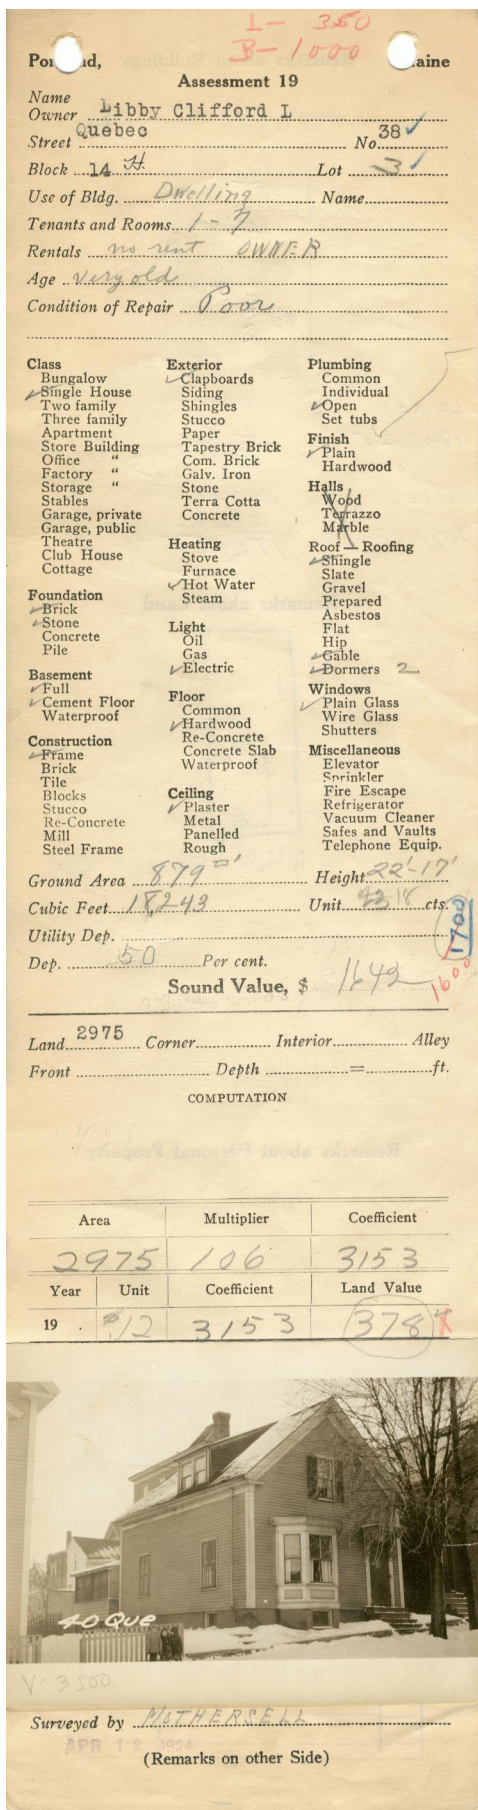 L - 350
B - 1000
Portland, Maine
Assessment 19
Name
Owner Libby Clifford L
Street Quebec No. 38
Block 14 H. Lot 3
Use of Bldg. Dwelling Name
Tenants and Rooms 1 - 7
Rentals no rent OWNER
Age very old
Condition of Repair Poor
Class
Bungalow
Single House
Two family
Three family
Apartment
Store Building
Office "
Factory "
Storage "
Stables
Garage, private
Garage, public
Theatre
Club House
Cottage
Foundation
Brick
Stone
Concrete
Pile
Basement
Full
Cement Floor
Waterproof
Construction
Frame
Brick
Tile
Blocks
Stucco
Re-Concrete
Mill
Steel Frame
Exterior
Clapboards
Siding
Shingles
Stucco
Paper
Tapestry Brick
Com. Brick
Galv. Iron
Stone
Terra Cotta
Concrete
Heating
Stove
Furnace
Hot Water
Steam
Light
Oil
Gas
Electric
Floor
Common
Hardwood
Re-Concrete
Concrete Slab
Waterproof
Ceiling
Plaster
Metal
Panelled
Rough
Plumbing
Common
Individual
Open
Set tubs
Finish
Plain
Hardwood
Halls
Wood
Terrazzo
Marble
Roof — Roofing
Shingle
Slate
Gravel
Prepared
Asbestos
Flat
Hip
Gable
Dormers 2
Windows
Plain Glass
Wire Glass
Shutters
Miscellaneous
Elevator
Sprinkler
Fire Escape
Refrigerator
Vacuum Cleaner
Safes and Vaults
Telephone Equip.
Ground Area 879 □' Height 22'-17'
Cubic Feet 18,243 Unit 18 cts.
1700
Utility Dep.
Dep. 50 Per cent.
1600
Sound Value, $ 1642
Land 2975 Corner Interior Alley
Front Depth = ft.
COMPUTATION
Area Multiplier Coefficient
2975 106 3153
Year Unit Coefficient Land Value
19 . $.12 3153 378
40 Que
V. 3500
Surveyed by MOTHERSELL
APR 12 1924
(Remarks on other Side)